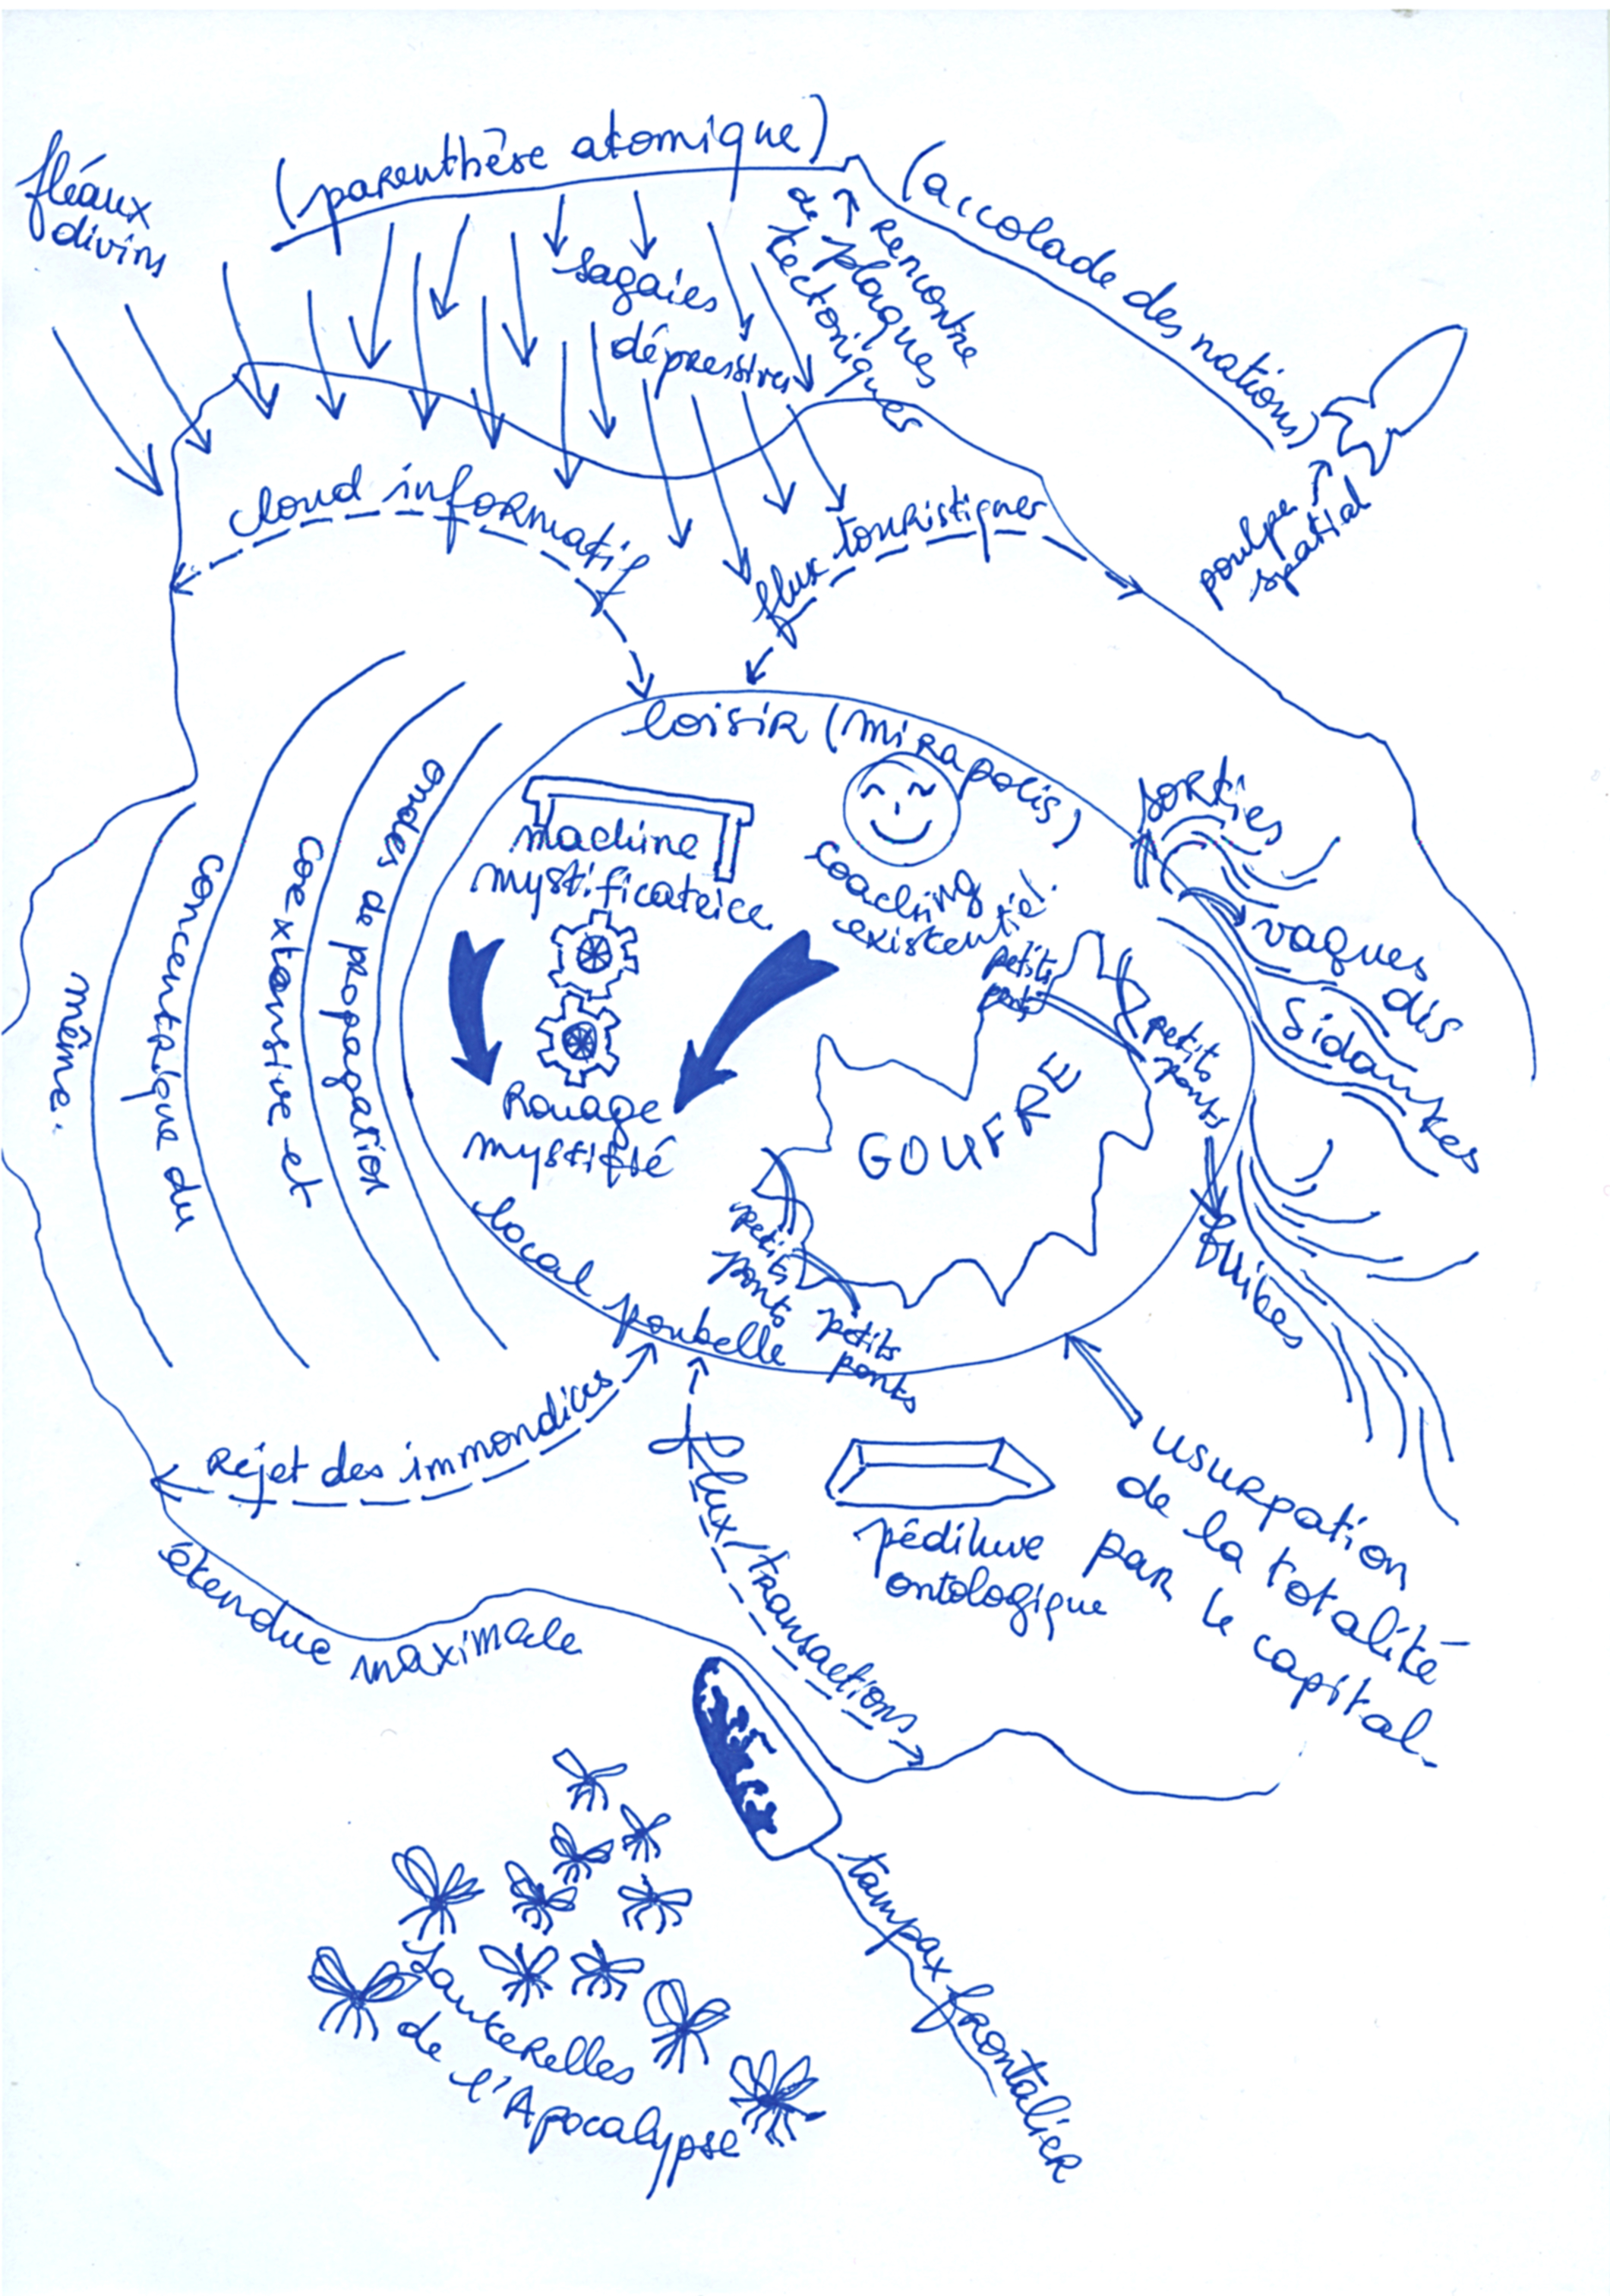 (parenthèse atomique)
fléaux
divins
(accolade des nations)
sagaies
dépressives
↑ Rencontre
de plaques
tectoniques
poulpe
spatial
cloud informatif
flux touristiques
loisir (mirapolis)
machine
mystificatrice
coaching
existentiel.
sorties
vaques
dis
sidantes
ondes de propagation
coextensive et
concentrique du
même.
petits
ponts
petits
ponts
GOUFRE
Rouage
mystifié
local poubelle
petits
ponts
petits
ponts
fuites
Rejet des immondices
flux/transactions
pédiluve
ontologique
usurpation
de la totalité
par le capital
étendue maximale
tampax frontalier
Sauterelles
de
l'Apocalypse